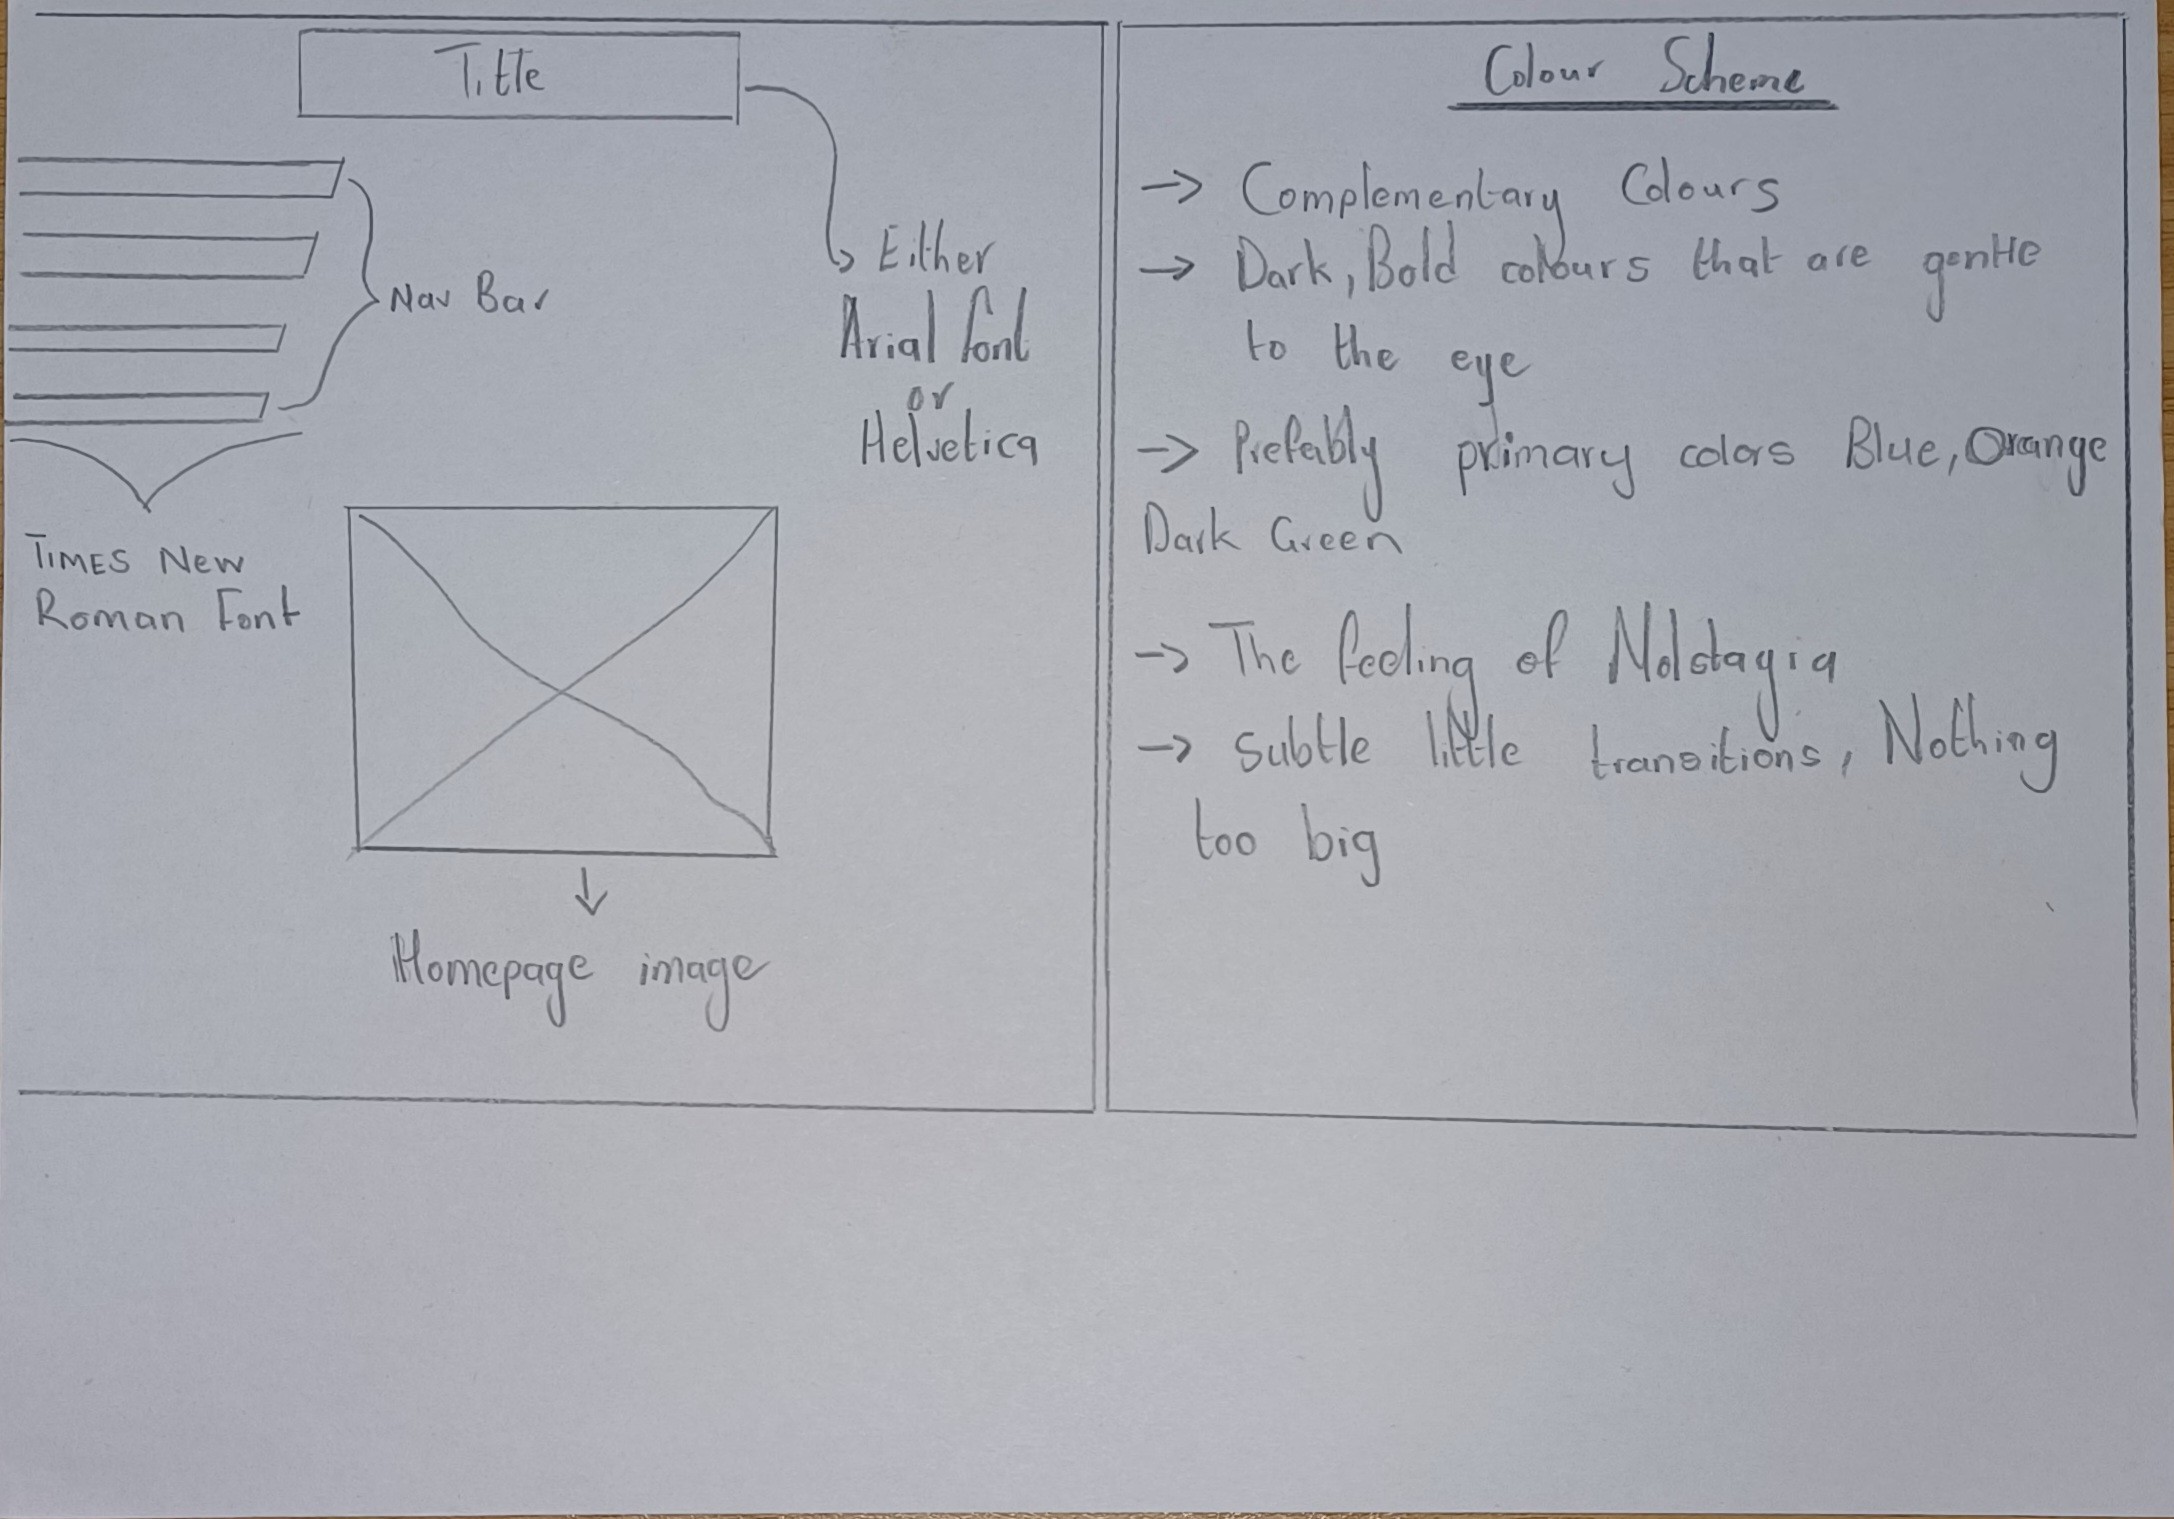 Title
Nav Bar
Either
Arial font
or
Helvetica
TIMES New
Roman Font
Homepage image
Colour Scheme
→ Complementary Colours
→ Dark, Bold colours that are gentle
to the eye
→ Prefably primary colors Blue, Orange
Dark Green
→ The feeling of Nolstagia
→ subtle little transitions, Nothing
too big